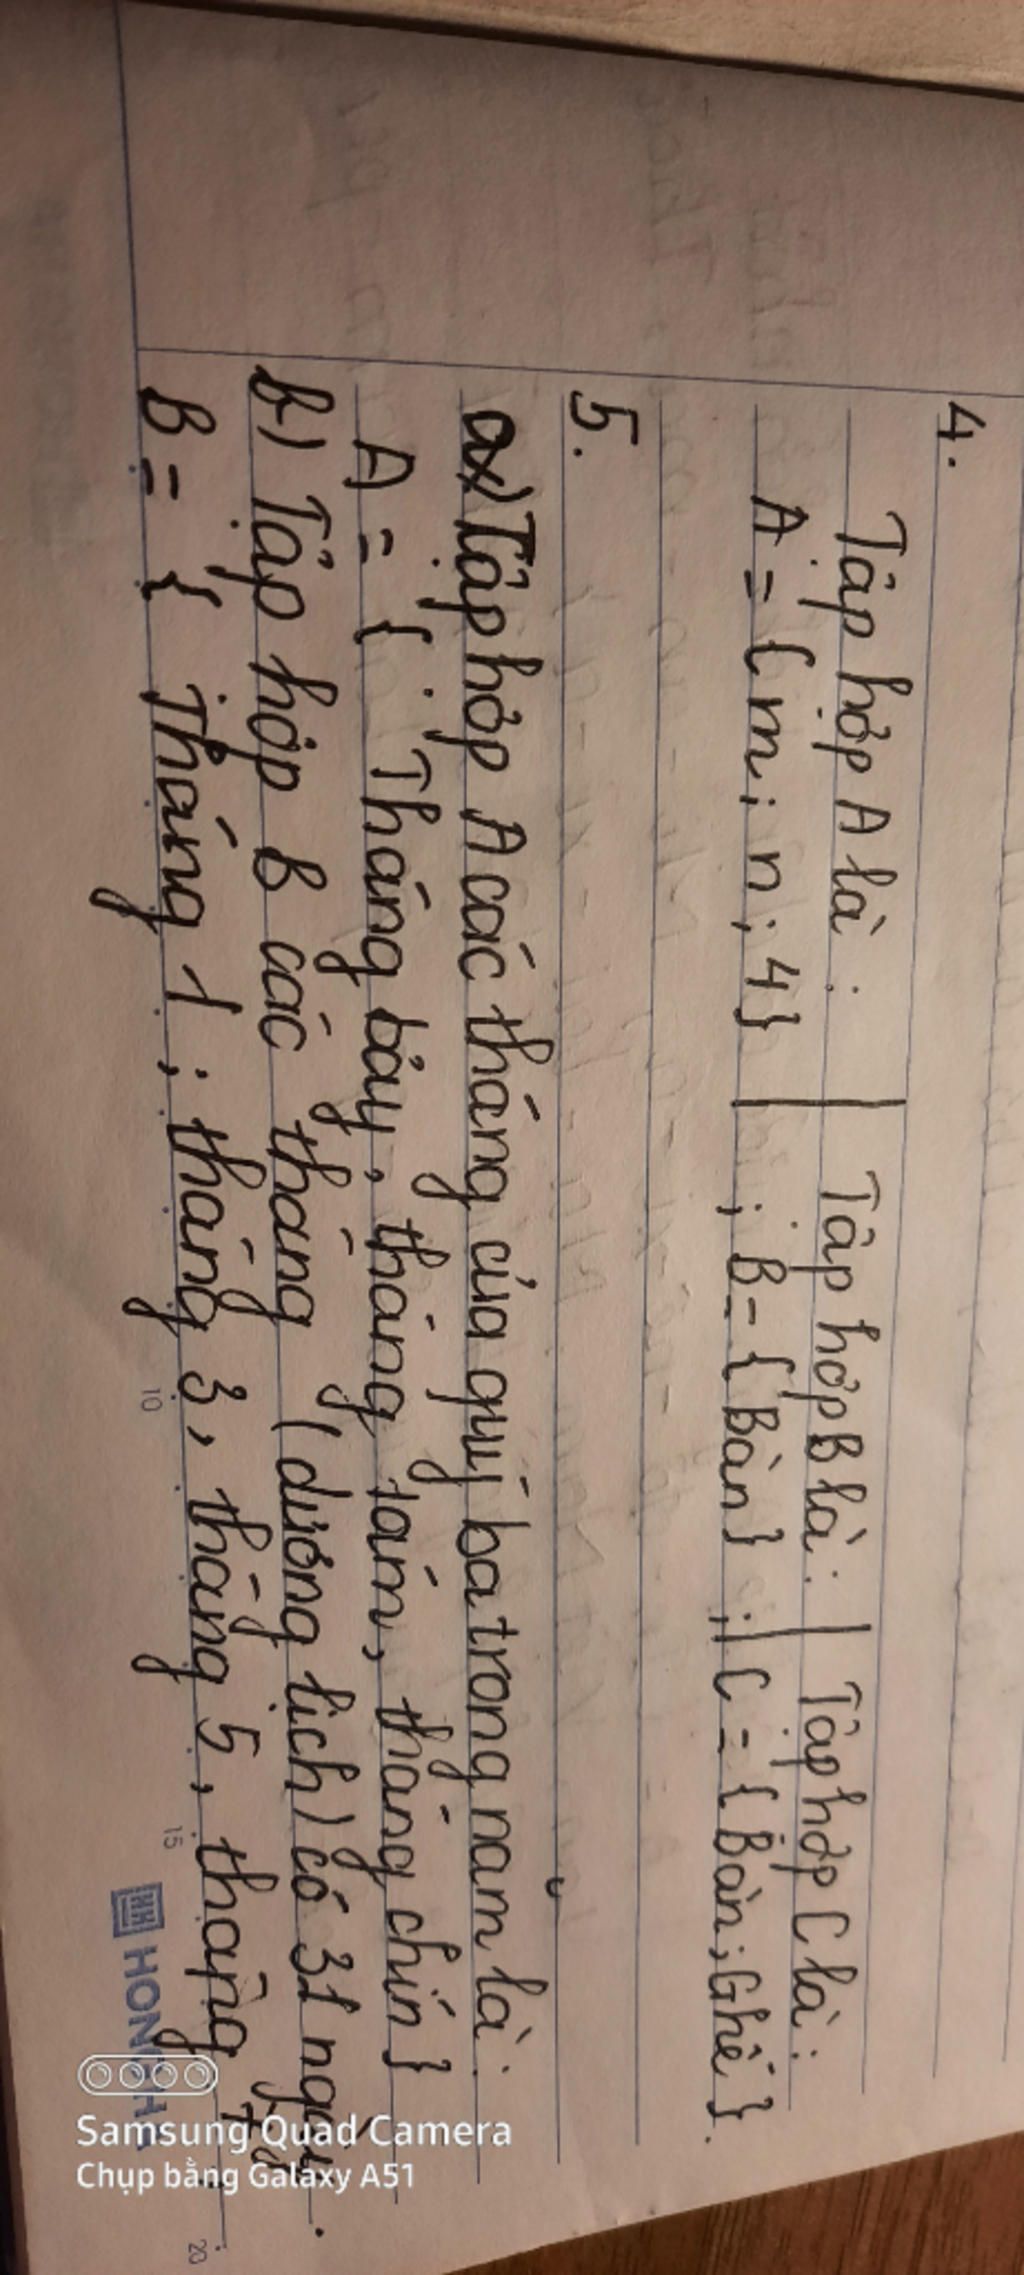 4.
Tập hợp A là : | Tập hợp B là : | Tập hợp C là :
A = {m ; n ; 4} | ; B = {Bàn} ; | C = {Bàn ; Ghế}.
5.
a) Tập hợp A các tháng của quý ba trong năm là :
A = { Tháng bảy, tháng tám, tháng chín }
b) Tập hợp B các tháng (dương lịch) có 31 ngày.
B = { Tháng 1 ; tháng 3, tháng 5, tháng 7,
10
15
20
HONG HA
Samsung Quad Camera
Chụp bằng Galaxy A51